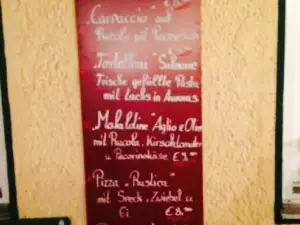 „Carpaccio" auf
Rucola mit Parmesan
„Tortelloni" Salmone
Frische gefüllte Pasta
mit Lachs in
„Mafaldine" Aglio e Olio
mit Rucola, Kirschtomaten
u Pecorinokäse €9.
Pizza „Rustica"
mit Speck, Zwiebel u
Ei €8.